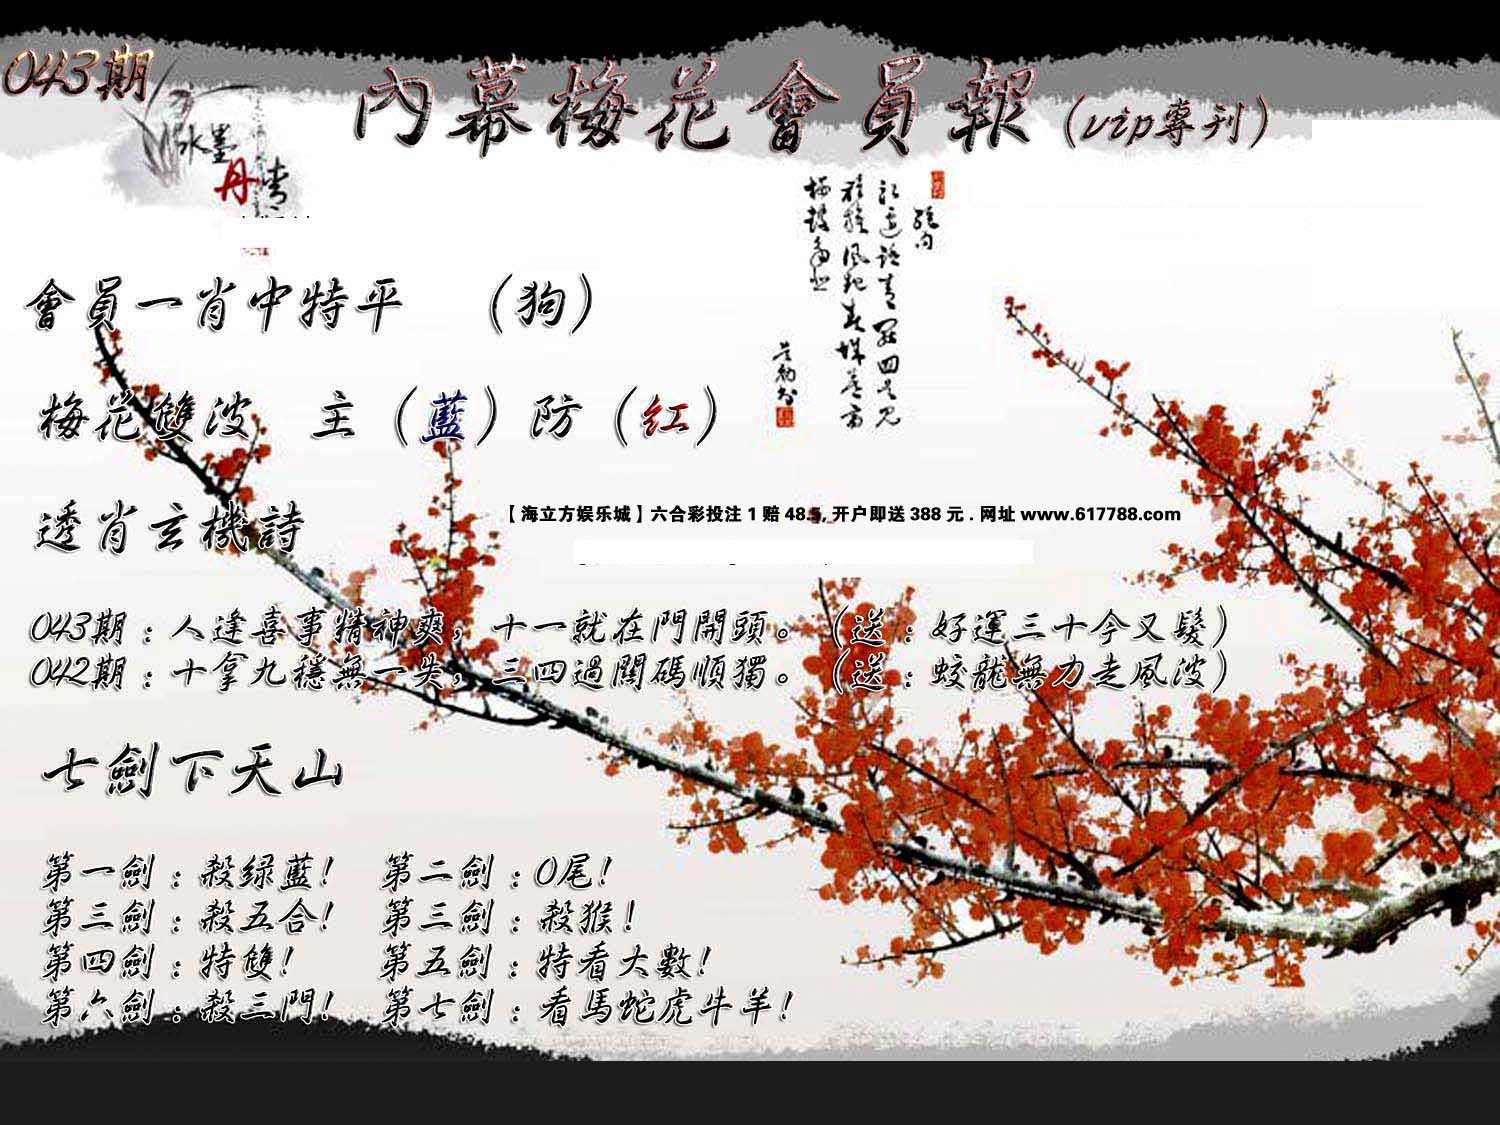 043期
內幕梅花會員報（vip專刊）
水墨
丹青
會員一肖中特平 （狗）
梅花雙波 主（藍）防（紅）
透肖玄機詩
【海立方娱乐城】六合彩投注1赔48.5,开户即送388元.网址www.617788.com
043期：人逢喜事精神爽，十一就在門開頭。（送：好運三十今又髮）
042期：十拿九穩無一失，三四過關碼順獨。（送：蛟龍無力走風波）
七劍下天山
第一劍：殺绿藍！ 第二劍：0尾！
第三劍：殺五合！ 第三劍：殺猴！
第四劍：特雙！ 第五劍：特看大數！
第六劍：殺三門！ 第七劍：看馬蛇虎牛羊！